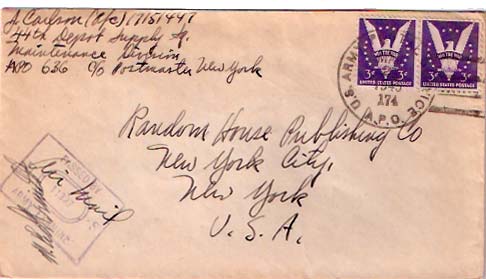 J. Carlson (A/c) 17151447
44th Depot Supply Sq.
Maintenance Division
APO 636 c/o Postmaster New York
WIN THE WAR
3¢ 3¢
UNITED STATES POSTAGE
WIN THE WAR
3¢ 3¢
UNITED STATES POSTAGE
U.S. ARMY
174
A.P.O.
Random House Publishing Co
New York City,
New York
U. S. A.
Air Mail
PASSED BY
ARMY